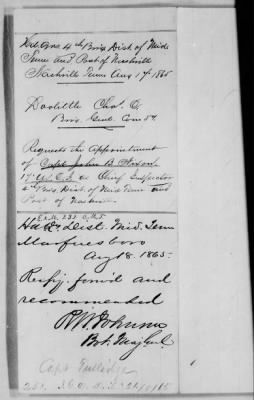 Hd. Qrs 4th Brig Dist. of Mid
Tenn and Post of Nashville
Nashville Tenn Aug 17th 1865
Doolittle Chas. C.
Brig. Genl. Com'dg
Requests the appointment
of Capt John B.
17" U.S.C.I. as Chief Inspector
4th Brig Dist. of Mid Tenn and
Post of Nash
Hd Qrs Dist. Mid. Tenn
Murfreesboro
Aug 18. 1865.
Resp'y. forw'd and
recommended
R W Johnson
Bvt. Maj Genl.
Capt Rutledge